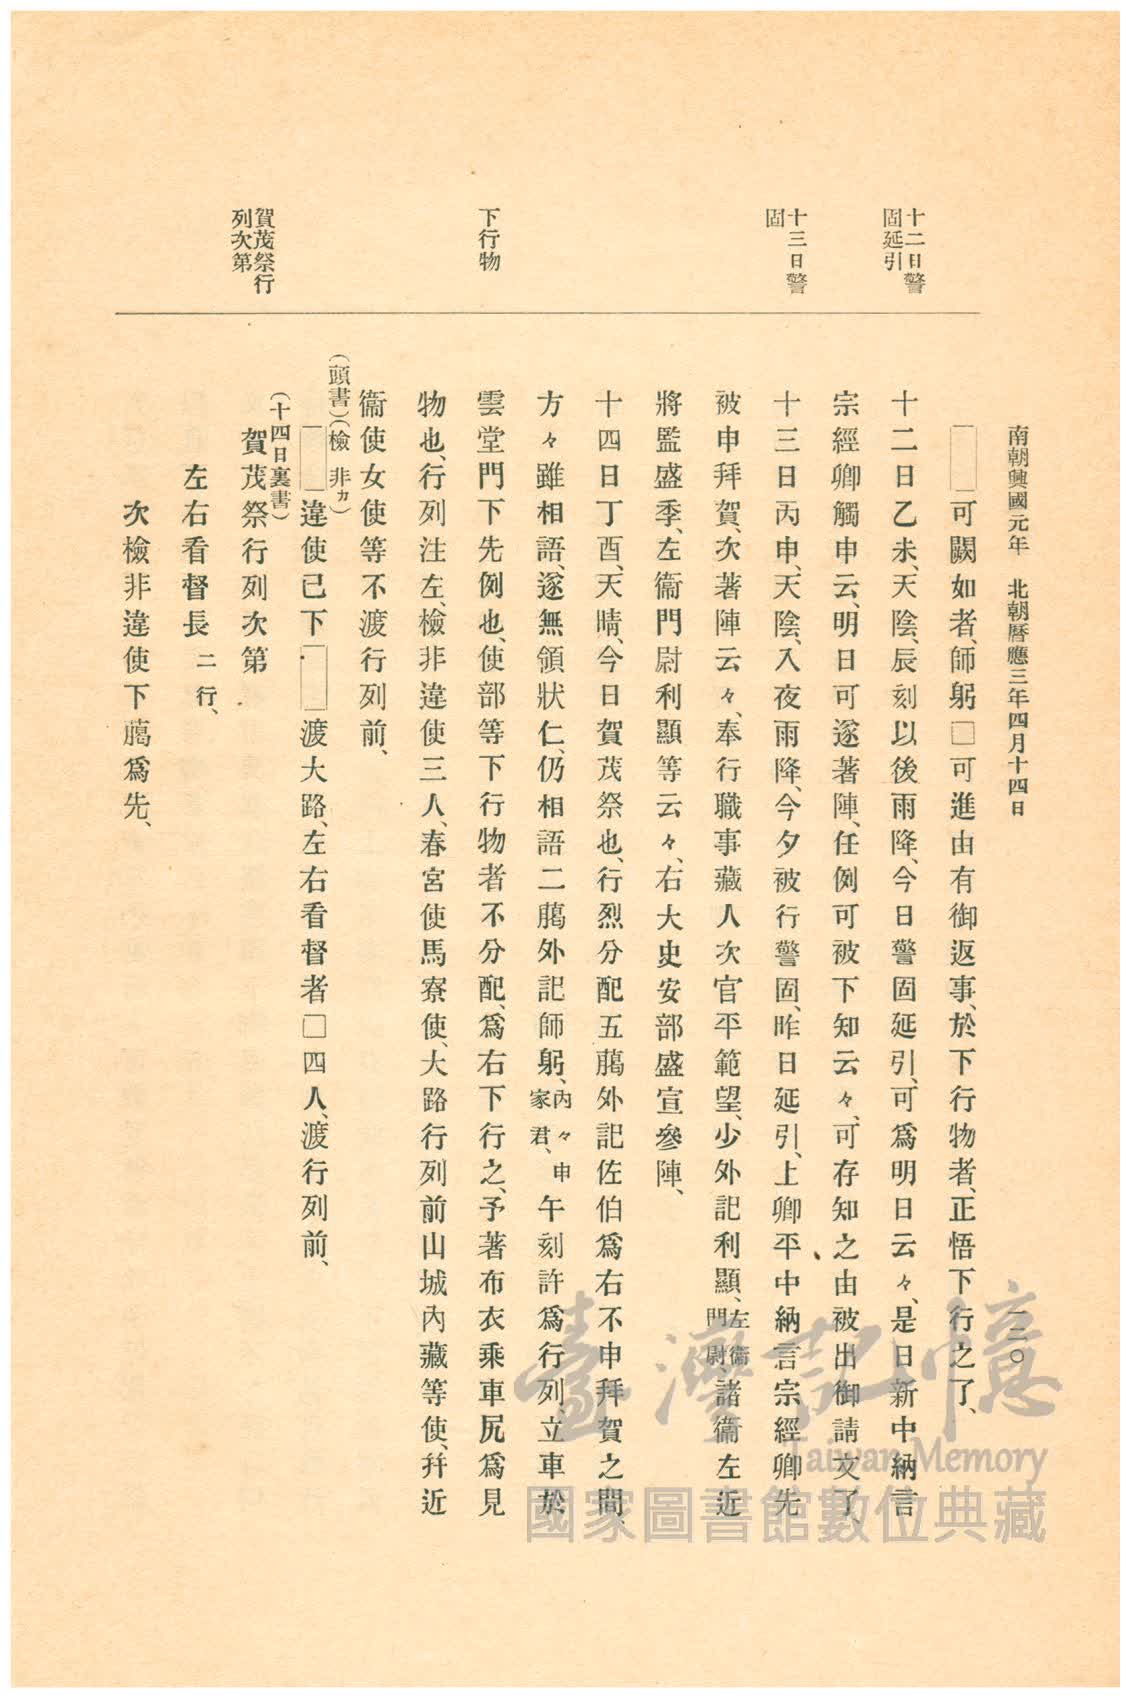 南朝興國元年　北朝曆應三年四月十四日
一二〇
十二日警
固延引
十三日警
固
下行物
賀茂祭行
列次第
□可闕如者、師躬□可進由有御返事、於下行物者、正悟下行之了、
十二日乙未、天陰、辰刻以後雨降、今日警固延引、可爲明日云々、是日新中納言
宗經卿觸申云、明日可遂著陣、任例可被下知云々、可存知之由被出御請文了、
十三日丙申、天陰、入夜雨降、今夕被行警固、昨日延引、上卿平中納言宗經卿先
被申拜賀、次著陣云々、奉行職事藏人次官平範望、少外記利顯、左衞門尉、諸衞左近
將監盛季、左衞門尉利顯等云々、右大史安部盛宣參陣、
十四日丁酉、天晴、今日賀茂祭也、行烈分配五﨟外記佐伯爲右不申拜賀之間、
方々雖相語、遂無領狀仁、仍相語二﨟外記師躬、內々申家君、午刻許爲行列、立車於
雲堂門下先例也、使部等下行物者不分配、爲右下行之、予著布衣乘車尻爲見
物也、行列注左、檢非違使三人、春宮使馬寮使、大路行列前山城內藏等使、幷近
衞使女使等不渡行列前、
（頭書）（檢非カ）
□違使已下□渡大路、左右看督者□四人、渡行列前、
（十四日裏書）
賀茂祭行列次第
左右看督長二行、
次檢非違使下﨟爲先、
臺灣記憶
Taiwan Memory
國家圖書館數位典藏